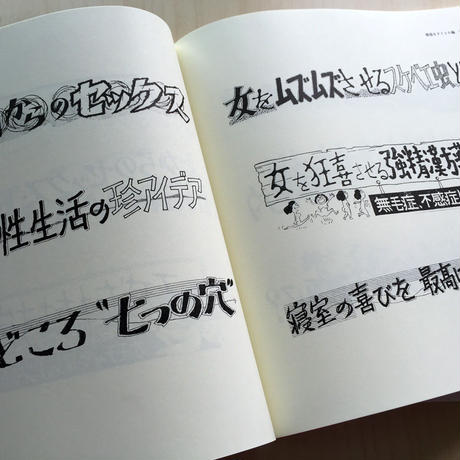 からのセックス
性生活の珍アイデア
どころ“七つの穴”
女をムズムズさせるスケベエ虫と
女を狂喜させる強精漢方薬
無毛症、不感症
寝室の喜びを最高に